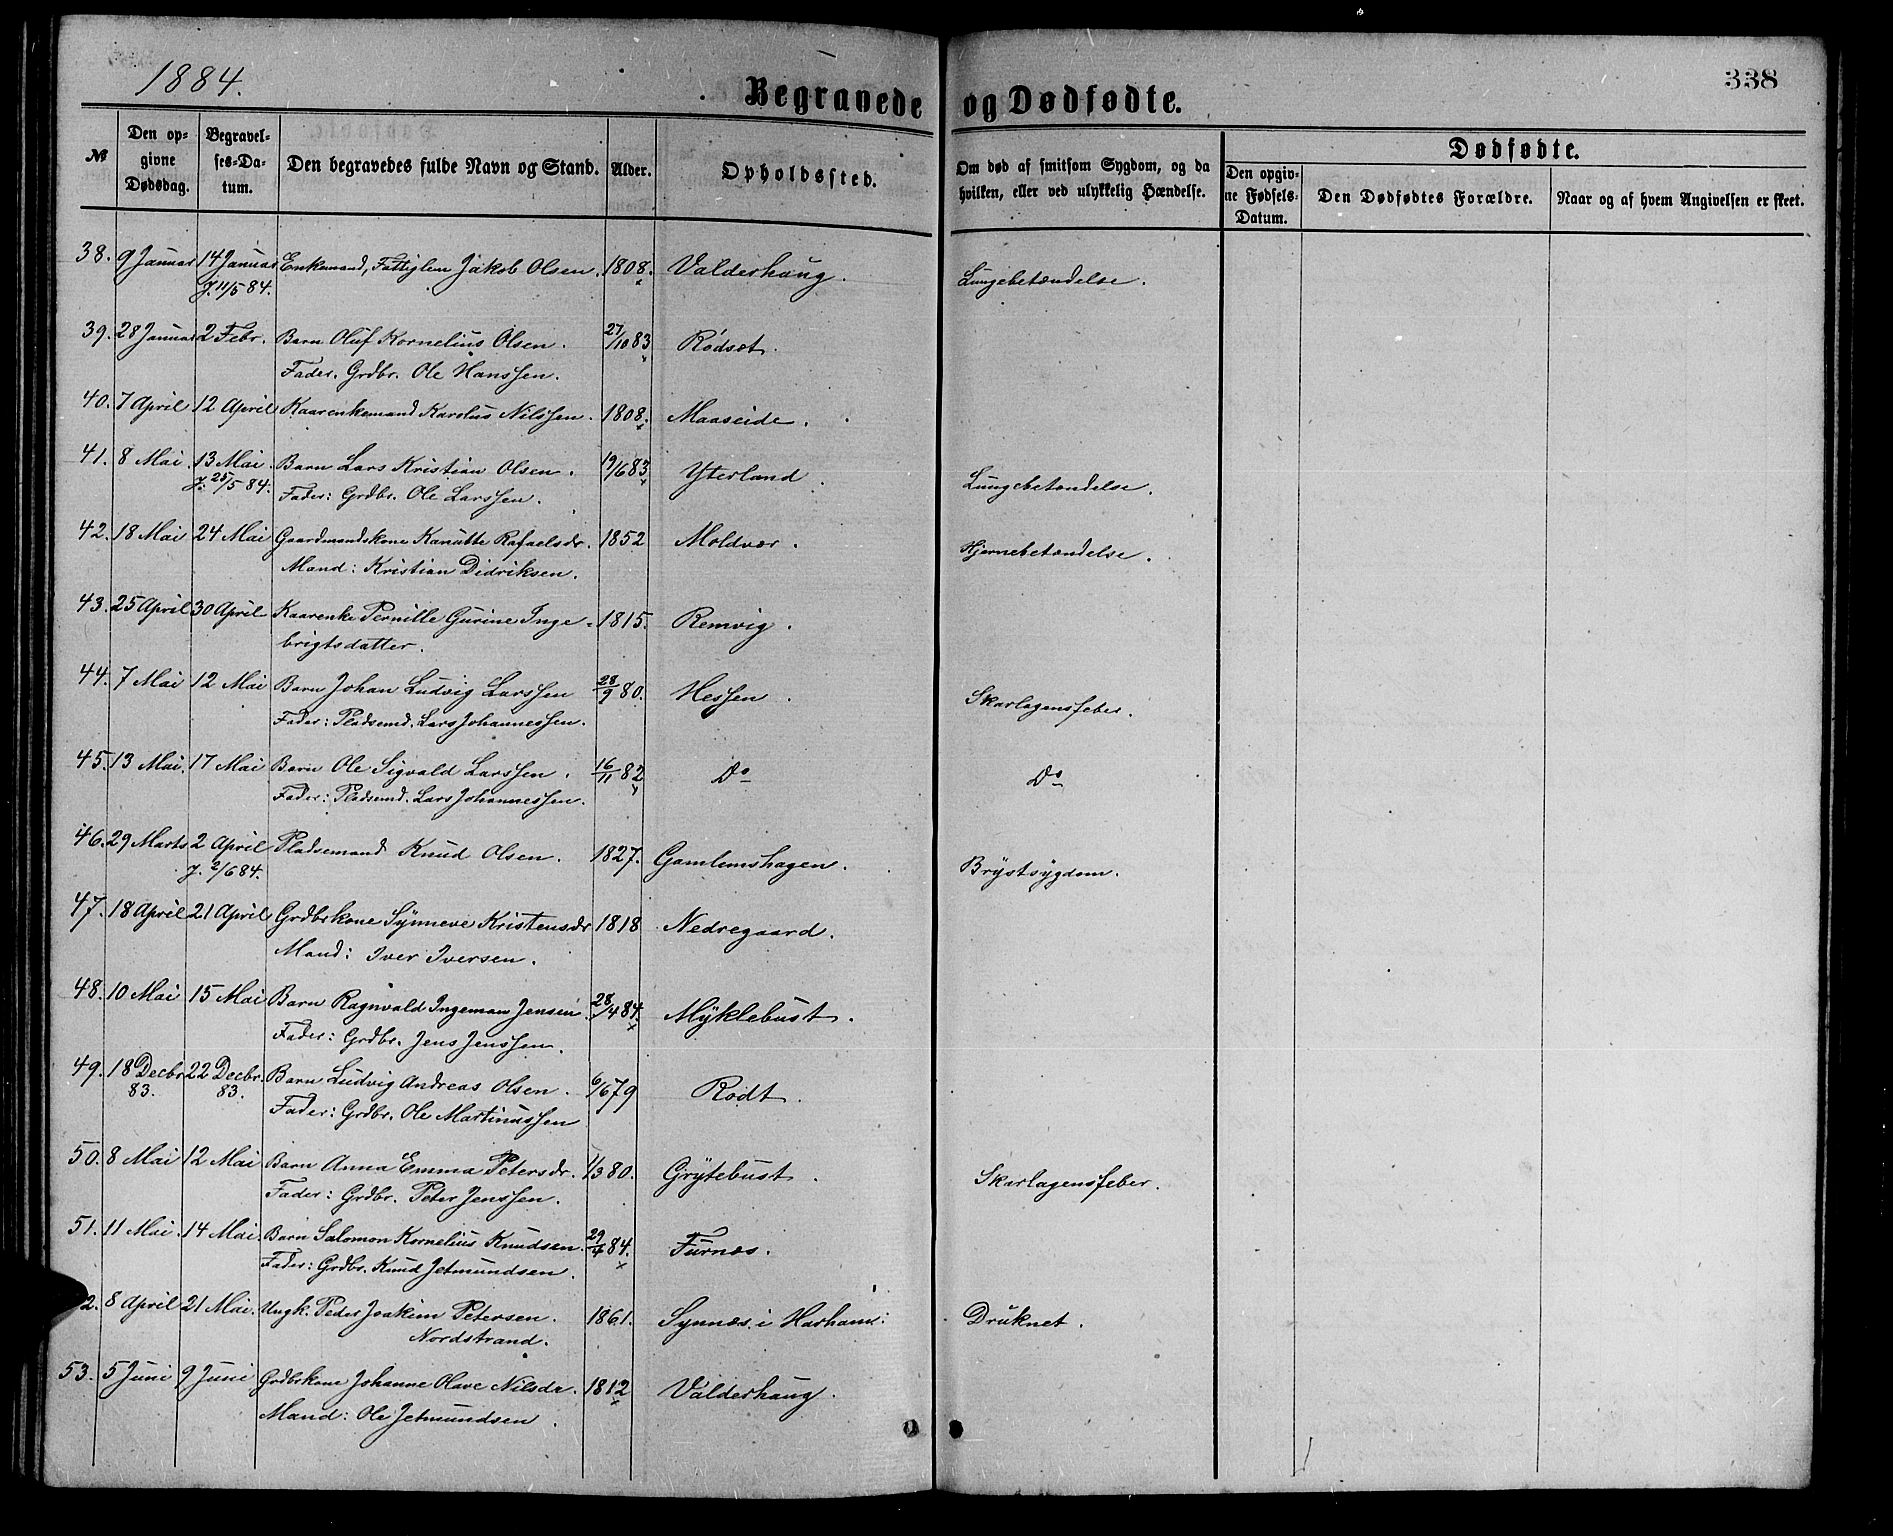 1884.
338
Begravede og Dødfødte.
№
Den opgivne Dødsdag.
Begravelses-Datum.
Den begravedes fulde Navn og Stand.
Alder.
Opholdssted.
Om død af smitsom Sygdom, og da hvilken, eller ved ulykkelig Hændelse.
Dødfødte.
Den opgivne Fødsels-Datum.
Den Dødfødtes Forældre.
Naar og af hvem Angivelsen er skeet.
38. 9 Januar 14 Januar Enkemand, Fattiglem Jakob Olsen. 1808. Valderhaug. Lungebetændelse.
J. 11/5 84.
39. 28 Januar 2 Febr. Barn Oluf Kornelius Olsen. 27/10 83 Rødset.
Fader. Grdbr. Ole Hanssen.
40. 7 April 12 April Kaarenkemand Karolus Nilssen. 1808. Maaseide.
41. 8 Mai 13 Mai. Barn Lars Kristian Olsen. 19/6 83 Yterland. Lungebetændelse.
J. 25/5 84. Fader: Grdbr. Ole Larssen.
42. 18 Mai 24 Mai Gaardmandskone Kanutte Rafaelsdr. 1852 Moldvær. Hjernebetændelse.
Mand: Kristian Didriksen.
43. 25 April 30 April Kaarenke Pernille Gurine Inge- 1815. Remvig.
brigtsdatter.
44. 7 Mai 12 Mai Barn Johan Ludvig Larssen 28/9 80. Hessen. Skarlagensfeber.
Fader: Pladsemd. Lars Johannessen.
45. 13 Mai. 17 Mai Barn Ole Sigvald Larssen. 16/11 82 Do Do
Fader: Pladsemd. Lars Johannessen.
46. 29 Marts 2 April Pladsemand Knud Olsen. 1827. Gamlemshagen. Brystsygdom.
J. 2/6 84.
47. 18 April 21 April Grdbrkone Synneve Kristensdr 1818 Nedregaard.
Mand: Iver Iversen.
48. 10 Mai 15 Mai Barn Ragnvald Ingeman Jensen 28/4 84. Myklebust.
Fader: Grdbr. Jens Jenssen.
49. 18 Decbr 22 Decbr. Barn Ludvig Andreas Olsen. 6/6 79 Rødt.
83. 83. Fader: Grdbr. Ole Martinussen
50. 8 Mai 12 Mai Barn Anna Emma Petersdr. 1/3 80. Grytebust. Skarlagensfeber.
Fader: Grdbr. Peter Jenssen.
51. 11 Mai. 14 Mai. Barn Salomon Kornelius Knudsen. 29/4 84. Furnæs.
Fader: Grdbr. Knud Jetmundsen.
2. 8 April 21 Mai. Ungk. Peder Joakim Petersen. 1861. Synnæs. i Harham: Druknet.
Nordstrand.
53. 5 Juni 9 Juni Grdbrkone Johanne Olave Nilsdr. 1812 Valderhaug.
Mand: Ole Jetmundsen.